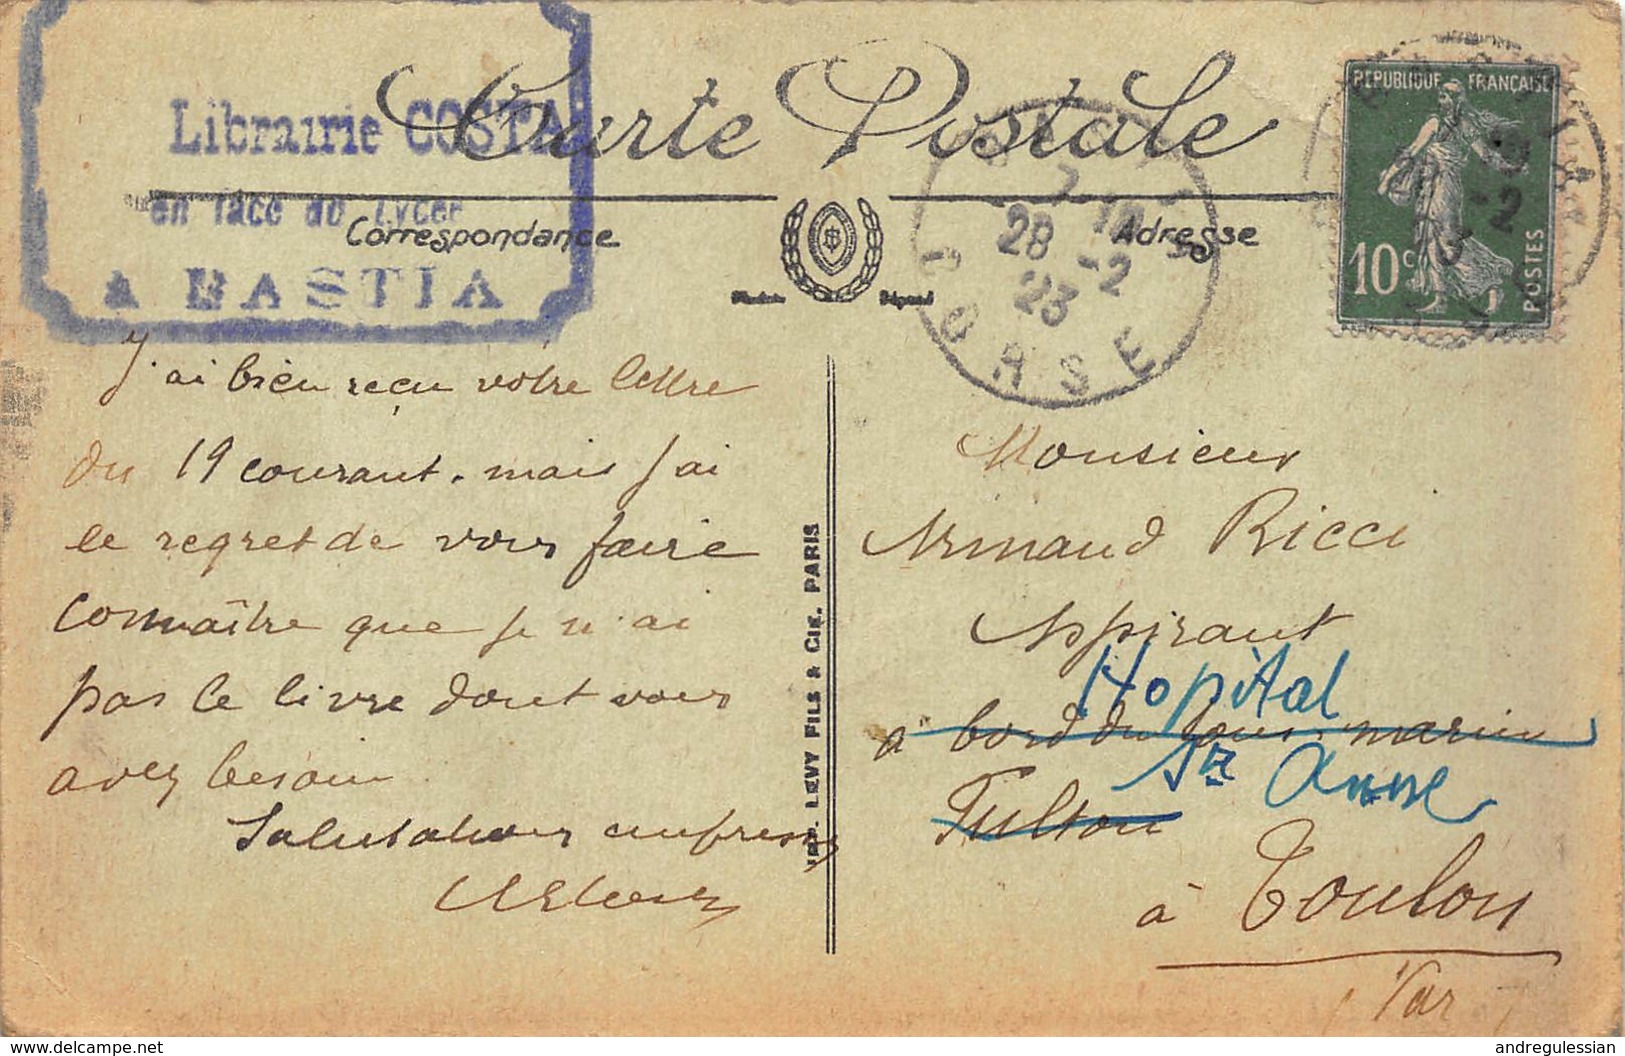 Librairie COSTA
en face du Lycée
A BASTIA
Carte Postale
Correspondance
Adresse
REPUBLIQUE FRANÇAISE
10c
POSTES
7 10
28 -2
23
CORSE
J'ai bien reçu votre lettre
du 19 courant. mais j'ai
le regret de vous faire
connaître que je n'ai
pas le livre dont vous
avez besoin
Salutations empressées
IMP. LEVY FILS & CIE. PARIS
Monsieur
Armand Ricci
Aspirant
Hopital
à bord du sous-marin
Ste Anne
Fulton
à Toulon
Var
delcampe.net
andregulessian